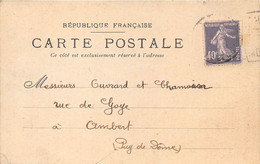 RÉPUBLIQUE FRANÇAISE
CARTE POSTALE
Ce côté est exclusivement réservé à l'adresse
40
Messieurs Ouvrard et Chamoisier
rue de Goye
à Ambert
Puy de Dôme